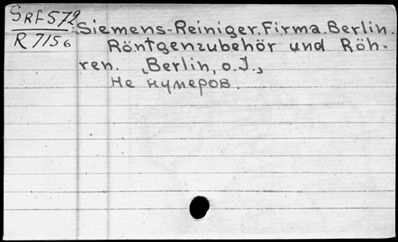 SRF 572
R 7156
Siemens-Reiniger. Firma. Berlin.
Röntgenzubehör und Röh-
ren. Berlin, o.J.,
Не нумеров.